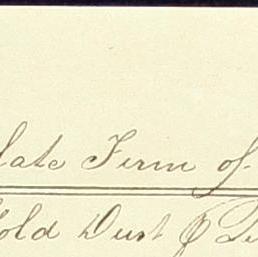 late Firm of
Gold Dust &